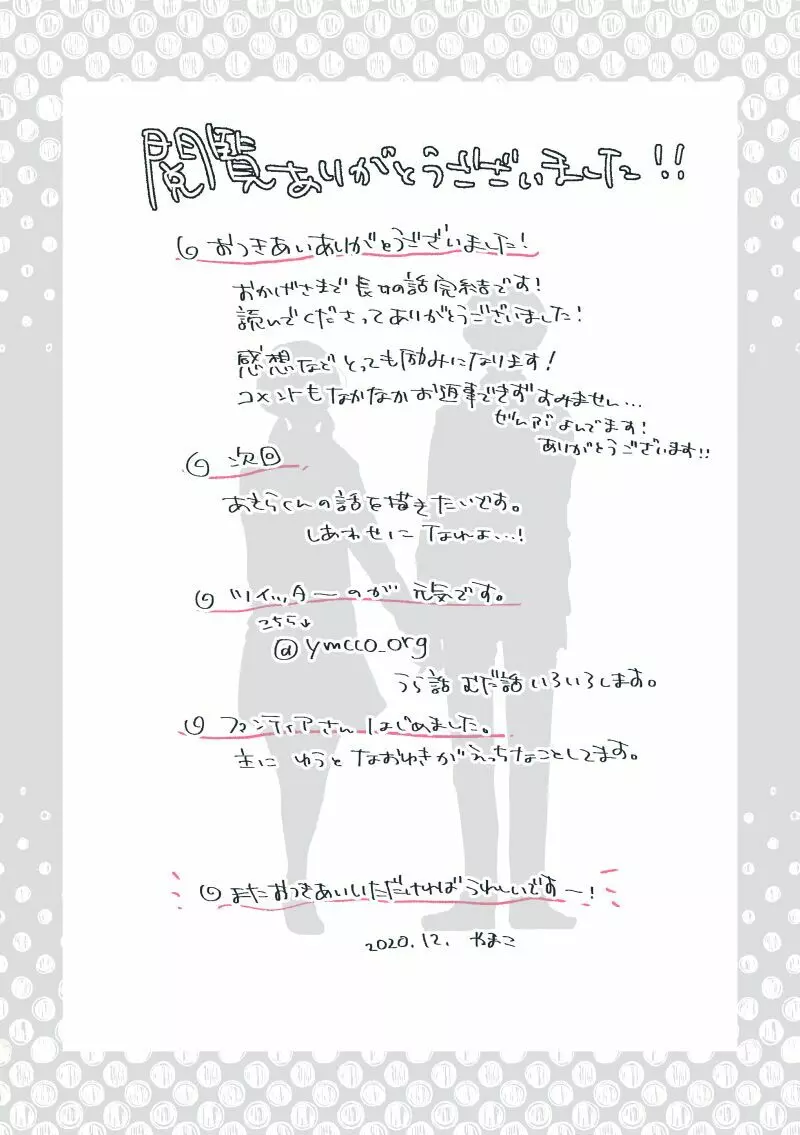 閲覧ありがとうございました!!
おつきあいありがとうございました!
おかげさまで長女の話完結です!
読んでくださってありがとうございました!
感想などとっても励みになります!
コメントもなかなかお返事できずすみません…
ぜんぶよんでます!
ありがとうございます!!
次回
あきらくんの話を描きたいです。
しあわせになれよ…!
ツイッターのが元気です。
こちら↓
@ymcco_org
うら話むだ話いろいろします。
ファンティアさんはじめました。
主にゆうとなおゆきがえっちなことしてます。
またおつきあいいただければうれしいですー!
2020.12. やまこ